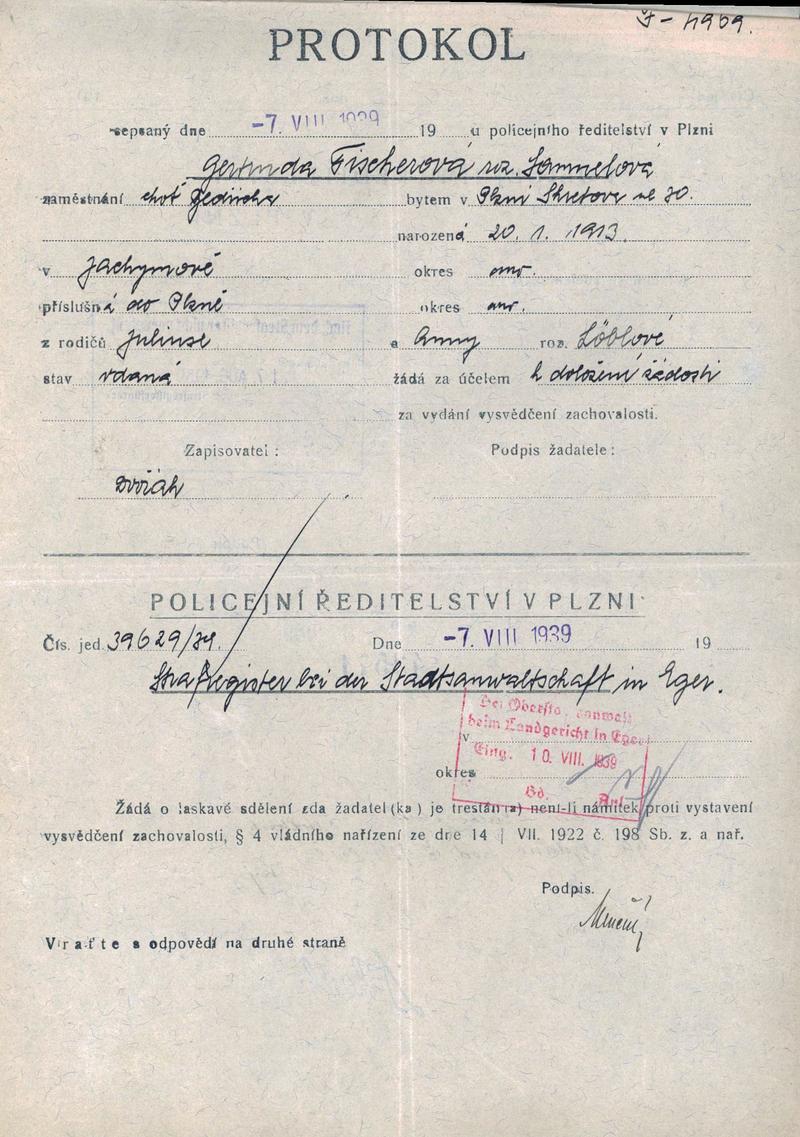 PROTOKOL
sepsaný dne -7. VIII 1939 19 u policejního ředitelství v Plzni
Gertruda Fischerová roz. Sammelová
zaměstnání choť bytem v Plzni Skretova 30.
narozená 20. 1. 1913.
v Jáchymově okres
příslušná do Plzně okres
z rodičů Juliuse a Anny roz. Löblové
stav vdaná žádá za účelem k doložení žádosti
za vydání vysvědčení zachovalosti.
Zapisovatel: Podpis žadatele:
Dvořák
POLICEJNÍ ŘEDITELSTVÍ V PLZNI
Čís. jed. 39629/39. Dne -7. VIII 1939 19
Strafregister bei der Stadtsanwaltschaft in Eger.
Der Oberstaatsanwalt
beim Landgericht in Eger
v
Eing. 10. VIII. 1939
okres
Bd. Anl.
Žádá o laskavé sdělení zda žadatel (ka) je trestán (a) není-li námitek proti vystavení
vysvědčení zachovalosti, § 4 vládního nařízení ze dne 14 | VII. 1922 č. 198 Sb. z. a nař.
Podpis.
Vraťte s odpovědí na druhé straně